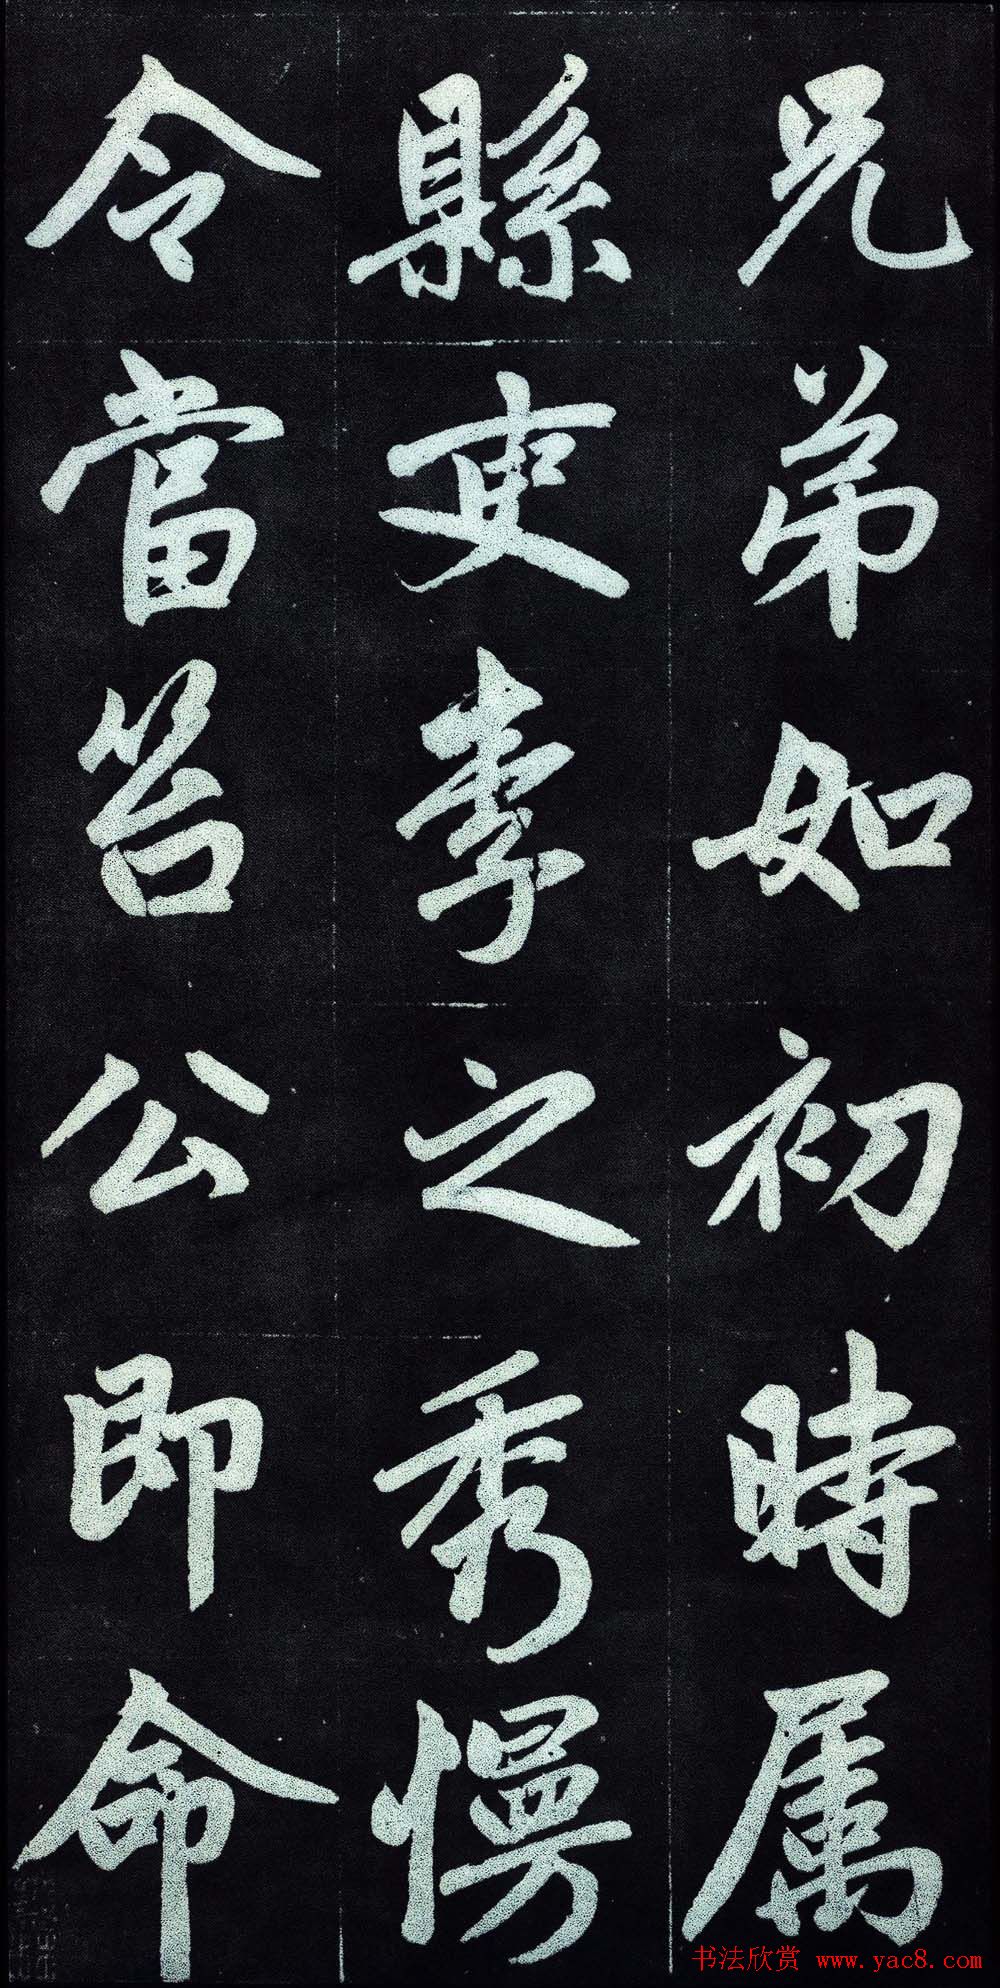 兄弟如初時属
縣吏李之秀慢
令當笞公即命
书法欣赏 www.yac8.com